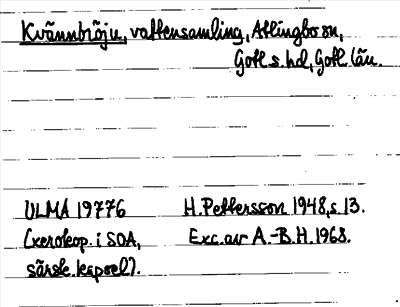 Kvännbröju, vattensamling, Atlingbo sn,
Gotl. s. hd, Gotl. län.
ULMA 19776 H. Pettersson 1948, s. 13.
(xerokop. i SOA, Exc. av A.-B. H. 1968.
särsk. kapsel).